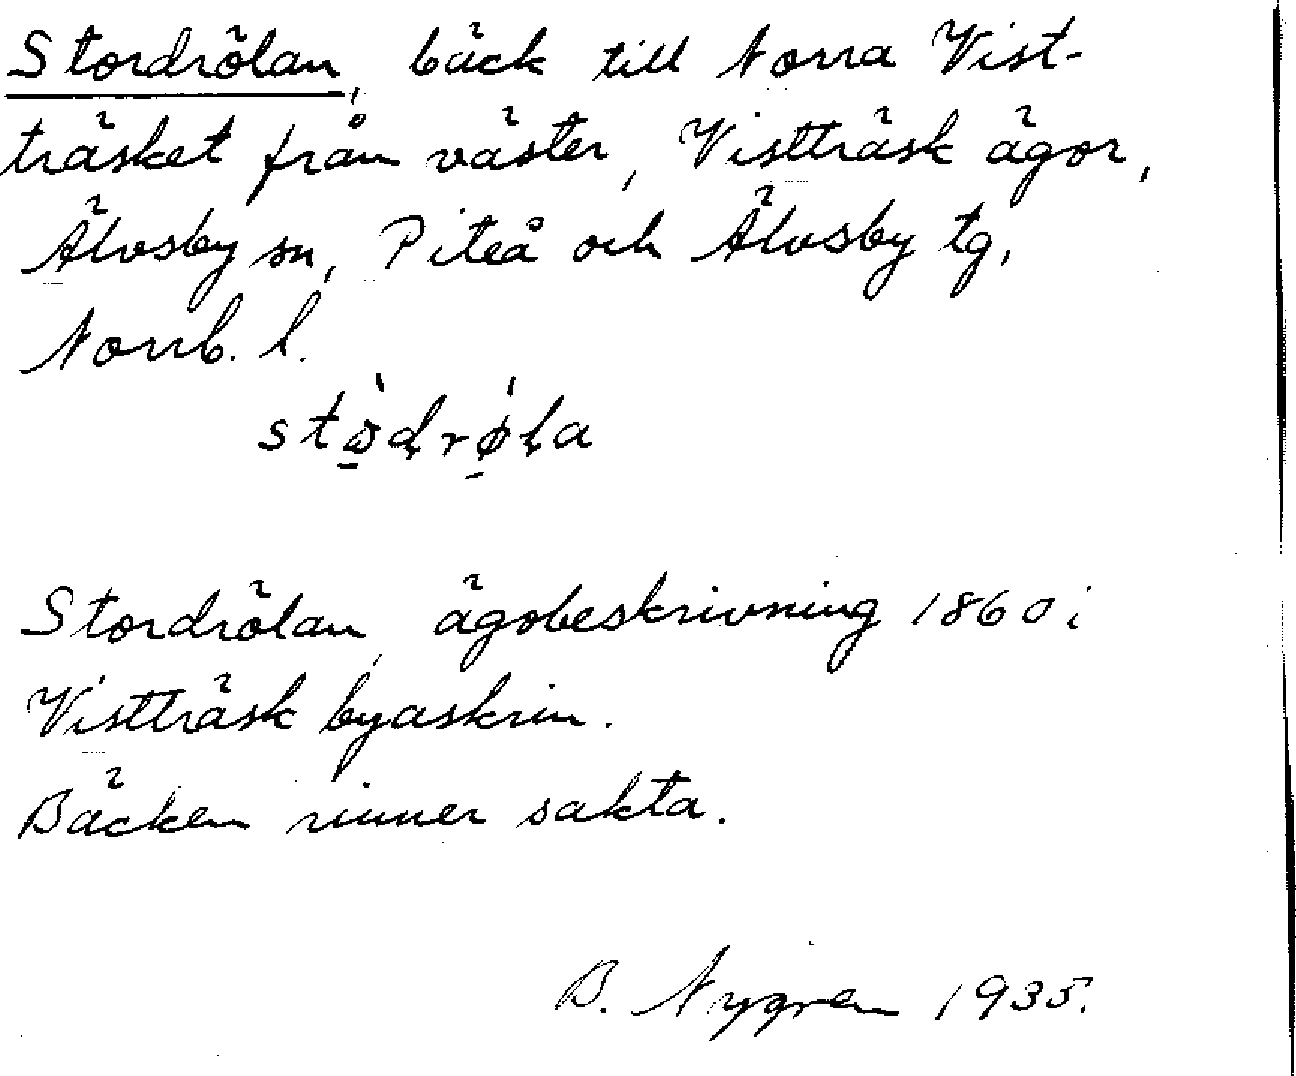 Stordrölan, bäck till Norra Vist-
träsket från väster, Vistträsk ägor,
Älvsby sn, Piteå och Älvsby tg,
Norrb. l.
Stordrölan, ägobeskrivning 1860 i
Vistträsk byaskrin.
Bäcken rinner sakta.
B. Nygren 1935.